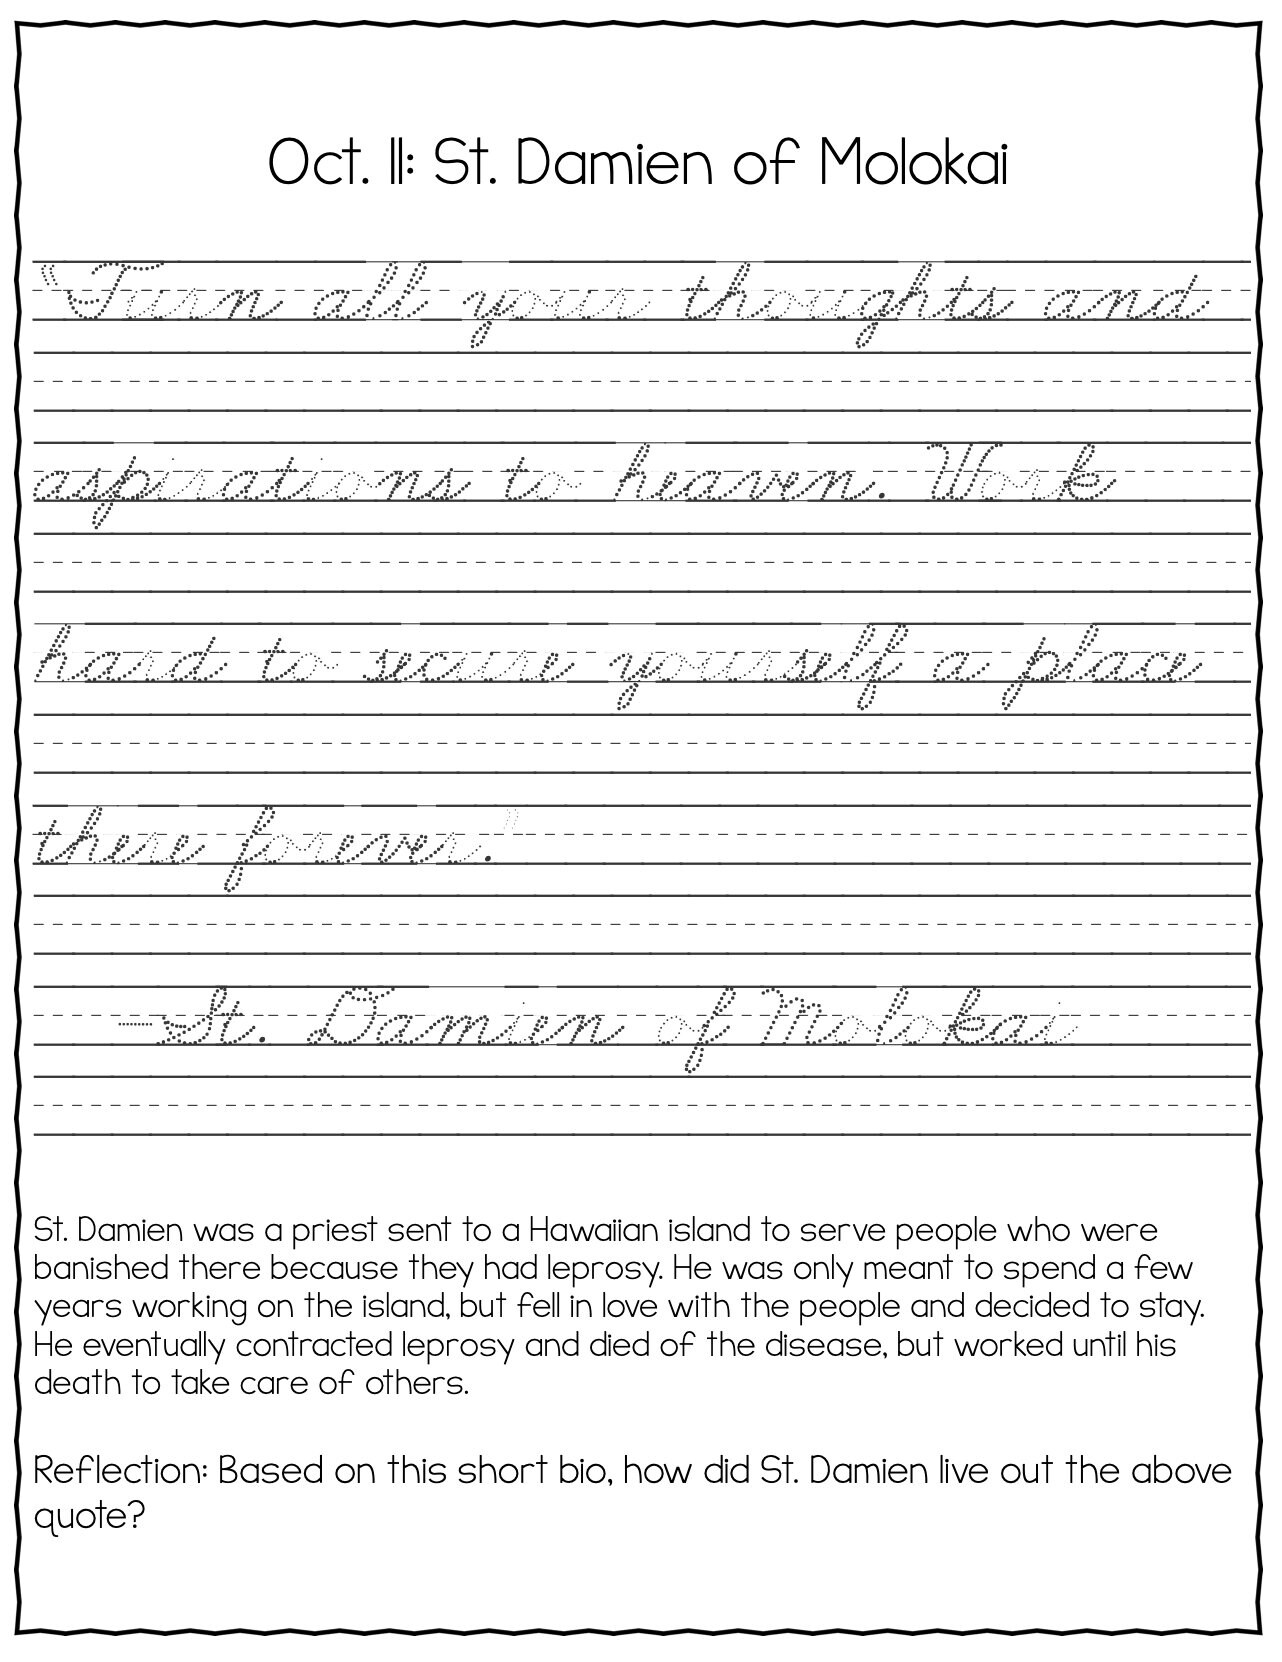 Oct. 11: St. Damien of Molokai
“Turn all your thoughts and
aspirations to heaven. Work
hard to secure yourself a place
there forever.”
—St. Damien of Molokai
St. Damien was a priest sent to a Hawaiian island to serve people who were
banished there because they had leprosy. He was only meant to spend a few
years working on the island, but fell in love with the people and decided to stay.
He eventually contracted leprosy and died of the disease, but worked until his
death to take care of others.
Reflection: Based on this short bio, how did St. Damien live out the above
quote?